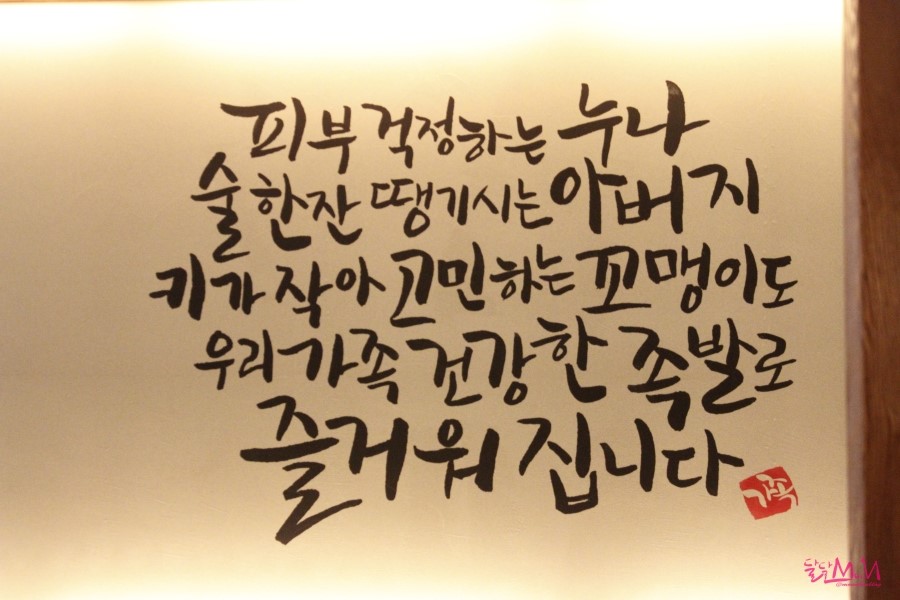 피부 걱정하는 누나
술 한잔 땡기시는 아버지
키가 작아 고민하는 꼬맹이도
우리 가족 건강한 족발로
즐거워 집니다
가족
달달 M&M